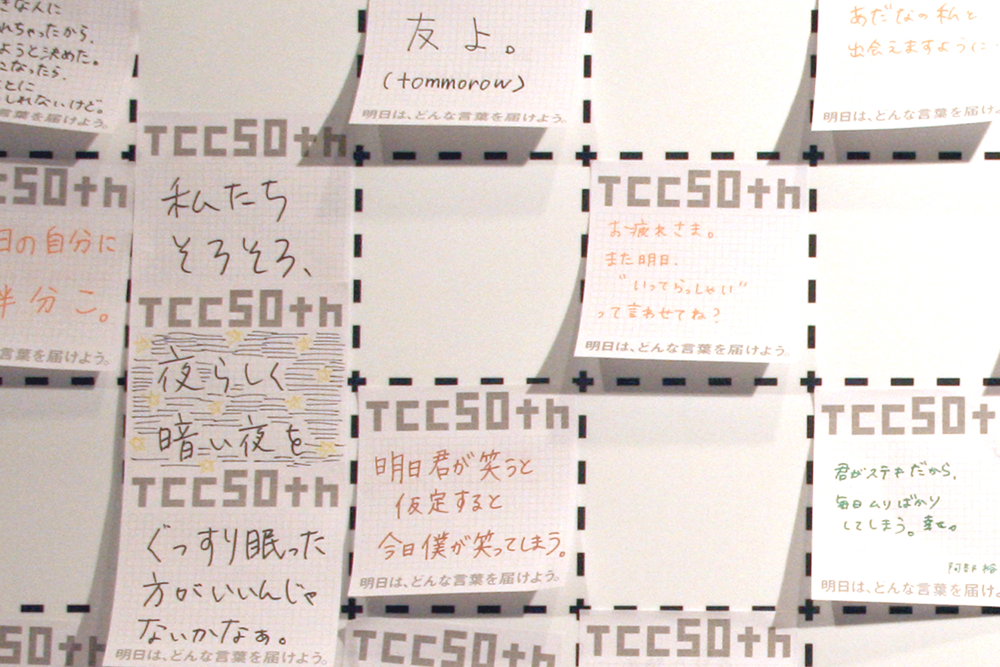 きな人に
れちゃったから、
ようと決めた。
になったら、
とに
しれないけど。
言葉を届けよう。
友よ。
(tommorow)
明日は、どんな言葉を届けよう。
あだなの私と
出会えますように
明日は、どんな言葉を届け
TCC50th
私たち
そろそろ、
TCC50th
夜らしく
暗い夜を
TCC50th
ぐっすり眠った
方がいいんじゃ
ないかなぁ。
明日は、どんな言葉を届けよう。
CC50th
日の自分に
半分こ。
言葉を届けよう。
TCC50th
お疲れさま。
また明日、
"いってらっしゃい"
って言わせてね?
明日は、どんな言葉を届けよう。
TCC50th
明日君が笑うと
仮定すると
今日僕が笑ってしまう。
明日は、どんな言葉を届けよう。
TCC50t
君がステキだから、
毎日ムリばかり
してしまう。幸せ。
明日は、どんな言葉を届けよう
C50th
TCC50th
TCC50th